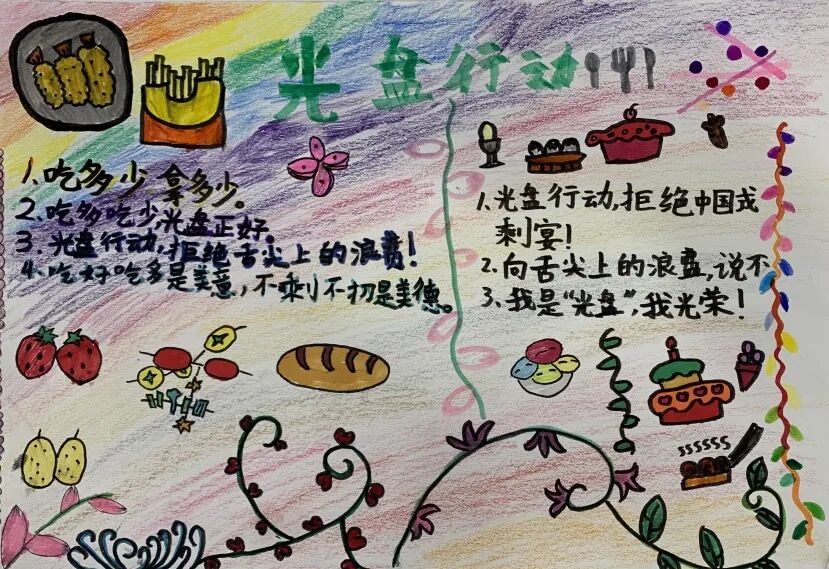 光盘行动
1、吃多少,拿多少。
2、吃多吃少,光盘正好。
3、光盘行动,拒绝舌尖上的浪费!
4、吃好吃多是美意,不剩不扔是美德。
1、光盘行动,拒绝中国式
剩宴!
2、向舌尖上的浪费,说不
3、我是“光盘”,我光荣!